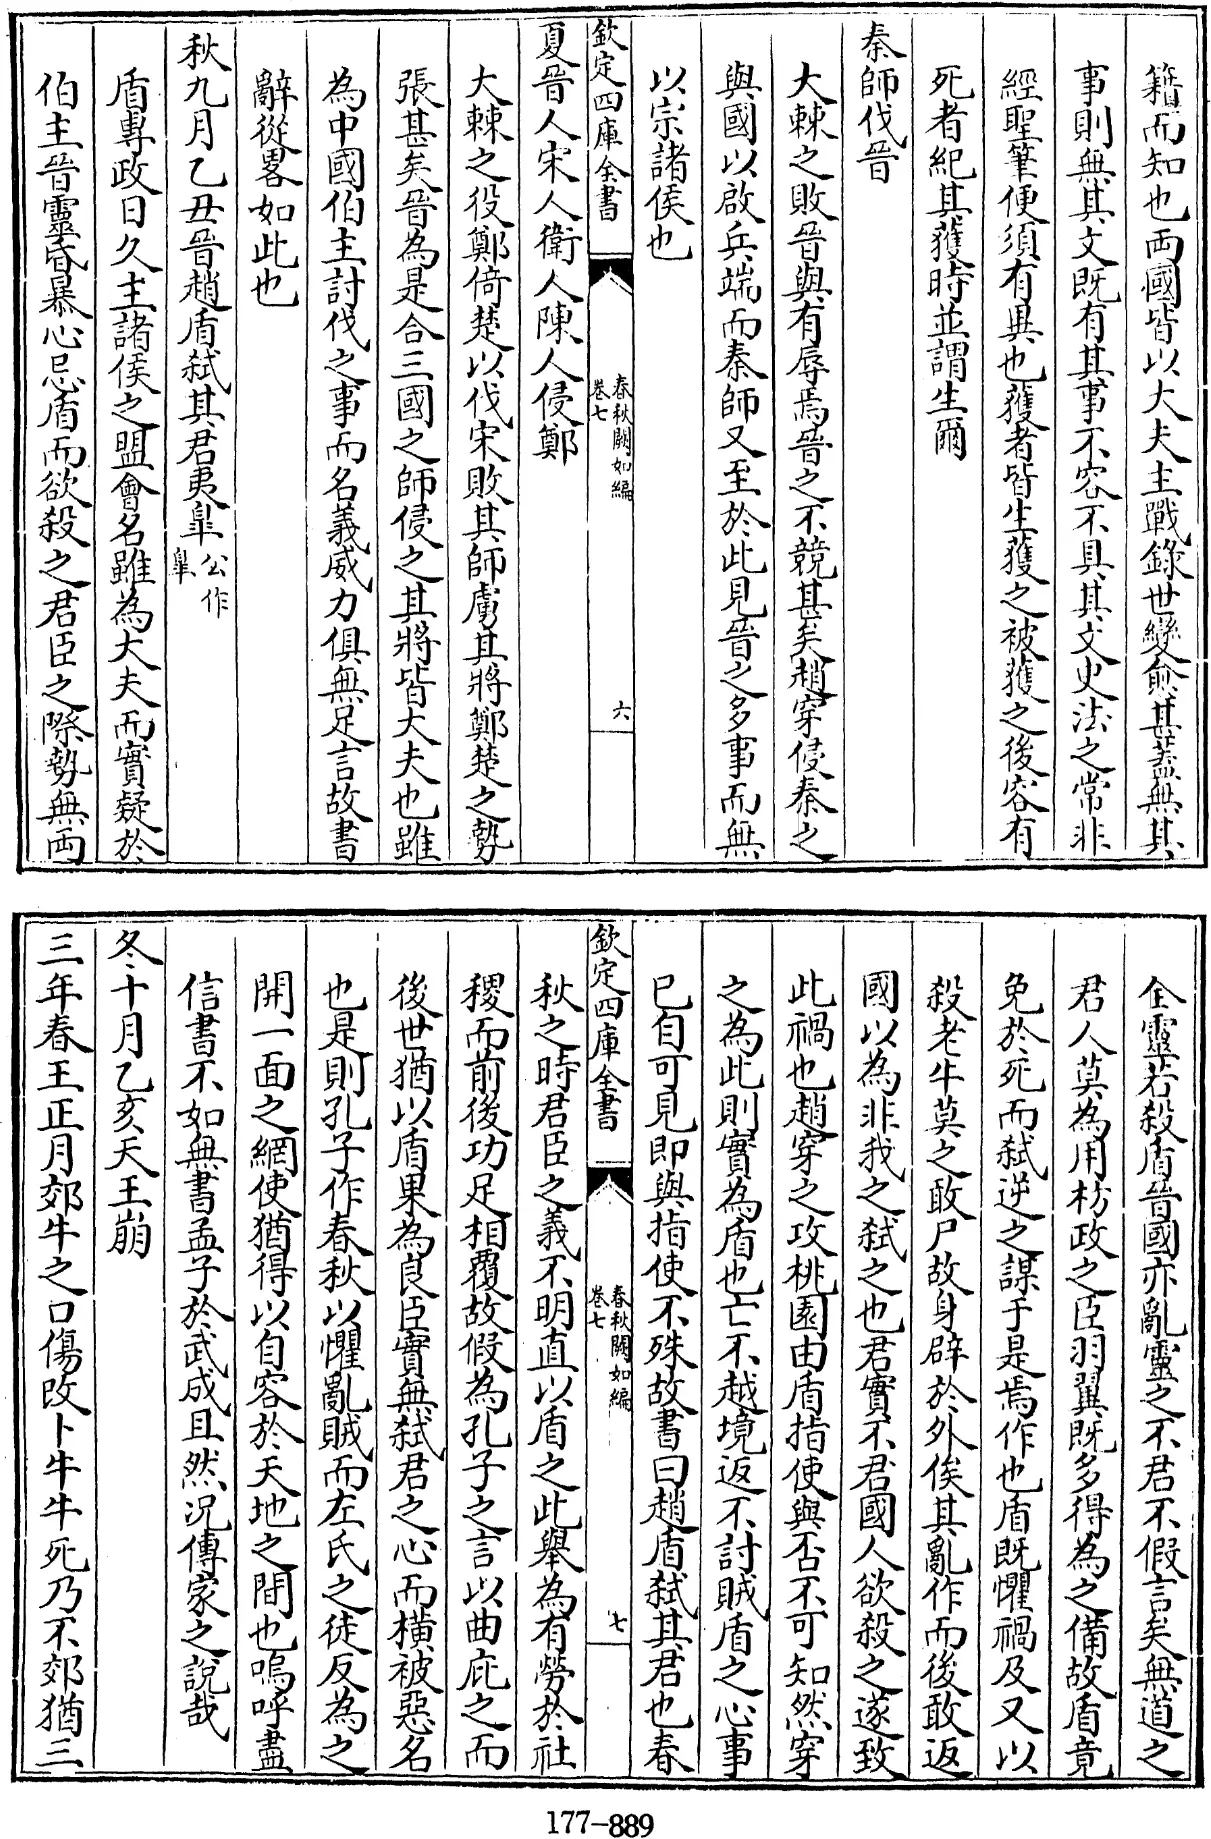 籍而知也両國皆以大夫主戰錄世變愈甚蓋無其
事則無其文既有其事不容不具其文史法之常非
經聖筆便須有異也獲者皆生獲之被獲之後容有
死者紀其獲時並謂生爾
秦師伐晉
大棘之敗晉與有辱焉晉之不競甚矣趙穿侵秦之
與國以啟兵端而秦師又至於此見晉之多事而無
以宗諸侯也
欽定四庫全書
春秋闕如編
卷七
六
夏晉人宋人衛人陳人侵鄭
大棘之役鄭倚楚以伐宋敗其師虜其將鄭楚之勢
張甚矣晉為是合三國之師侵之其將皆大夫也雖
為中國伯主討伐之事而名義威力俱無足言故書
辭從畧如此也
秋九月乙丑晉趙盾弑其君夷臯公作
臯
盾專政日久主諸侯之盟會名雖為大夫而實疑於
伯主晉靈昏暴心忌盾而欲殺之君臣之際勢無両
全靈若殺盾晉國亦亂靈之不君不假言矣無道之
君人莫為用枋政之臣羽翼既多得為之備故盾竟
免於死而弑逆之謀于是焉作也盾既懼禍及又以
殺老牛莫之敢尸故身辟於外俟其亂作而後敢返
國以為非我之弑之也君實不君國人欲殺之遂致
此禍也趙穿之攻桃園由盾指使與否不可知然穿
之為此則實為盾也亡不越境返不討賊盾之心事
已自可見即與指使不殊故書曰趙盾弑其君也春
欽定四庫全書
春秋闕如編
卷七
七
秋之時君臣之義不明直以盾之此舉為有勞於社
稷而前後功足相覆故假為孔子之言以曲庇之而
後世猶以盾果為良臣實無弑君之心而橫被惡名
也是則孔子作春秋以懼亂賊而左氏之徒反為之
開一面之網使猶得以自容於天地之間也嗚呼盡
信書不如無書孟子於武成且然况傳家之說哉
冬十月乙亥天王崩
三年春王正月郊牛之口傷改卜牛牛死乃不郊猶三
177-889